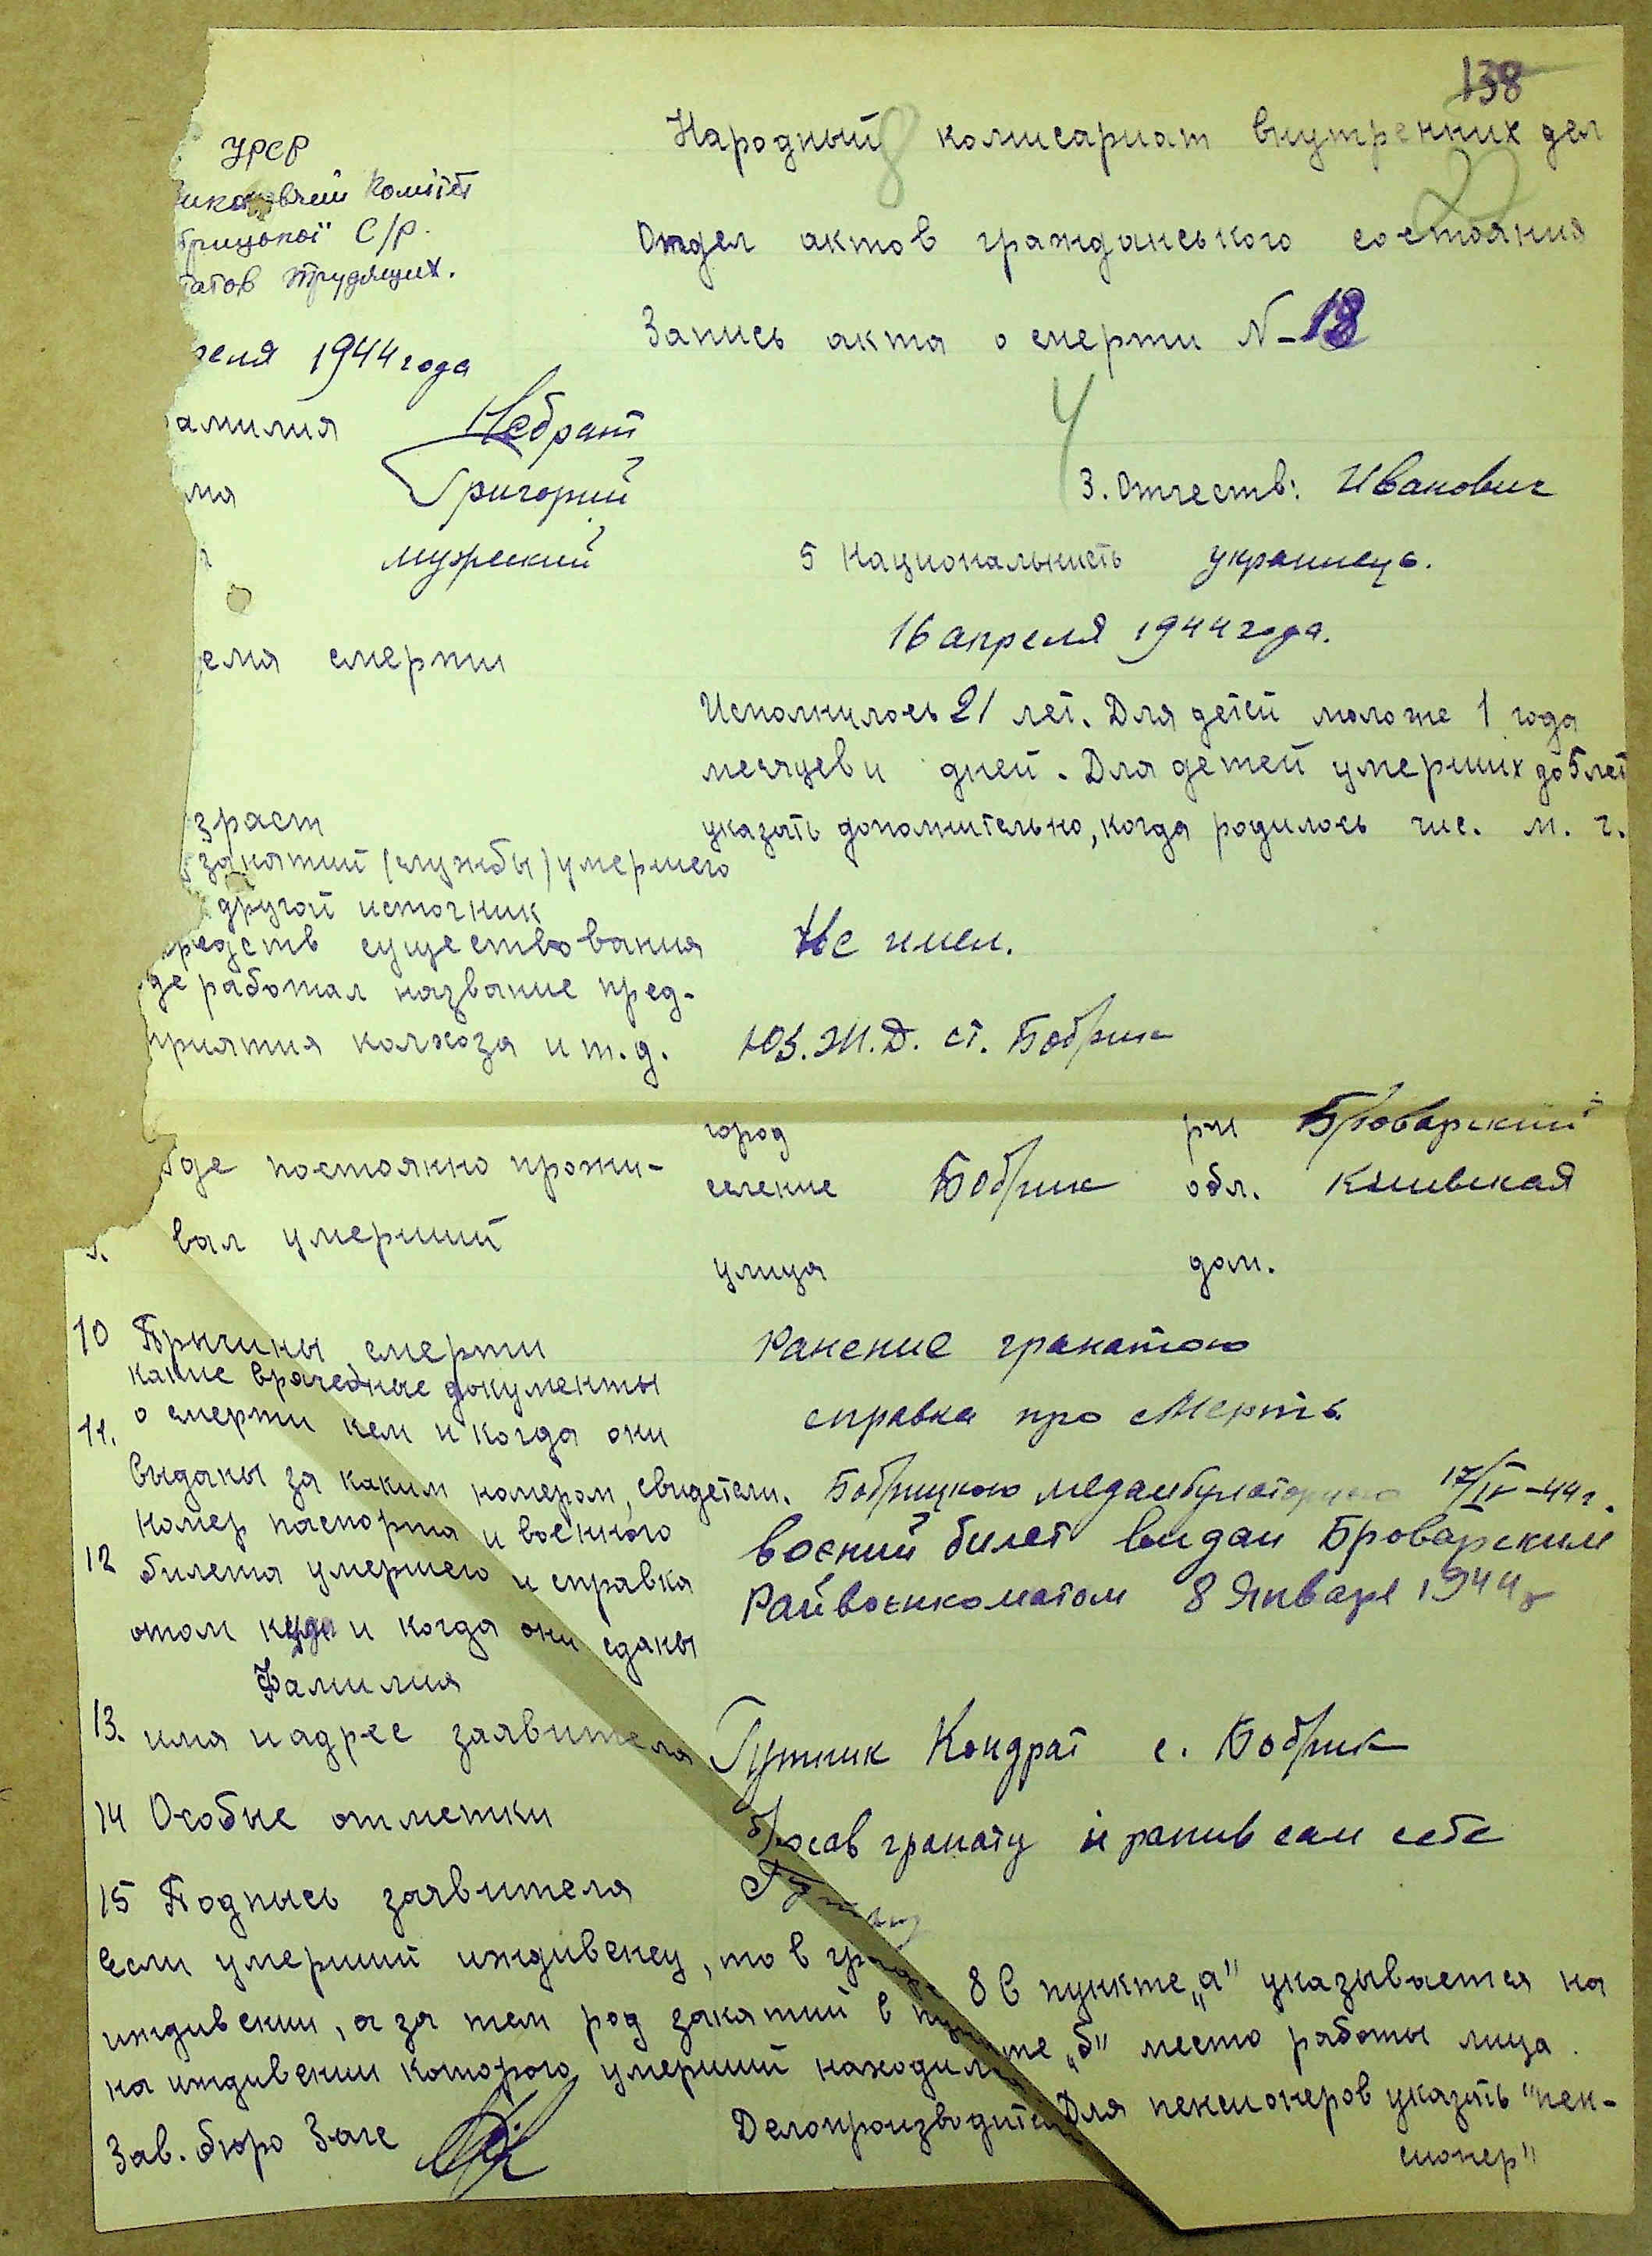 138
УРСР
иконавчий Комітет
брицької С/Р.
татов трудящих.
Народный комисариат внутренних дел
8
20
Отдел актов гражданського состояния
Запись акта о смерти N-18
реля 1944 года
4
амилия Небрат
мя Григорий 3. Отчеств: Иванович
л мужский 5 Национальнисть украинець.
емя смерти 16 апреля 1944 года.
Исполнилось 21 лет. Для детей моложе 1 года
месяцев и дней. Для детей умерших до 5 лет
зраст указать дополнительно, когда родилось чис. м. г.
занятий (службы) умершего
другой источник
редств существования Не имел.
де работал название пред-
приятия колхоза и т.д. Юз.Ж.Д. ст. Бобрик
город рн Броварский
где постоянно прожи- селение Бобрик обл. Киивская
вал умерший
улица дом.
10 Причины смерти ранение гранатою
какие врачебные документы
11. о смерти кем и когда они справка про смерть
выданы за каким номером, свидетели. Бобрицкою медамбулаторною 17/IV-44г.
номер паспорта и военного воєний билет видан Броварским
12 билета умершего и справка Райвоєнкоматом 8 Января 1944г
отом куда и когда они сданы
Фамилия
13. имя и адрес заявителя Путник Кондрат с. Бобрик
14 Особые отметки бросав гранату и ранив сам себе
15 Подпись заявителя
Если умерший иждивенец, то в графе 8 в пункте „а" указывается на
иждивении, а за тем род занятий в пункте „б" место работы лица
на иждивении которого умерший находился Для пенсионеров указать "пен-
сионер"
Зав. бюро Загс Делопроизводитель